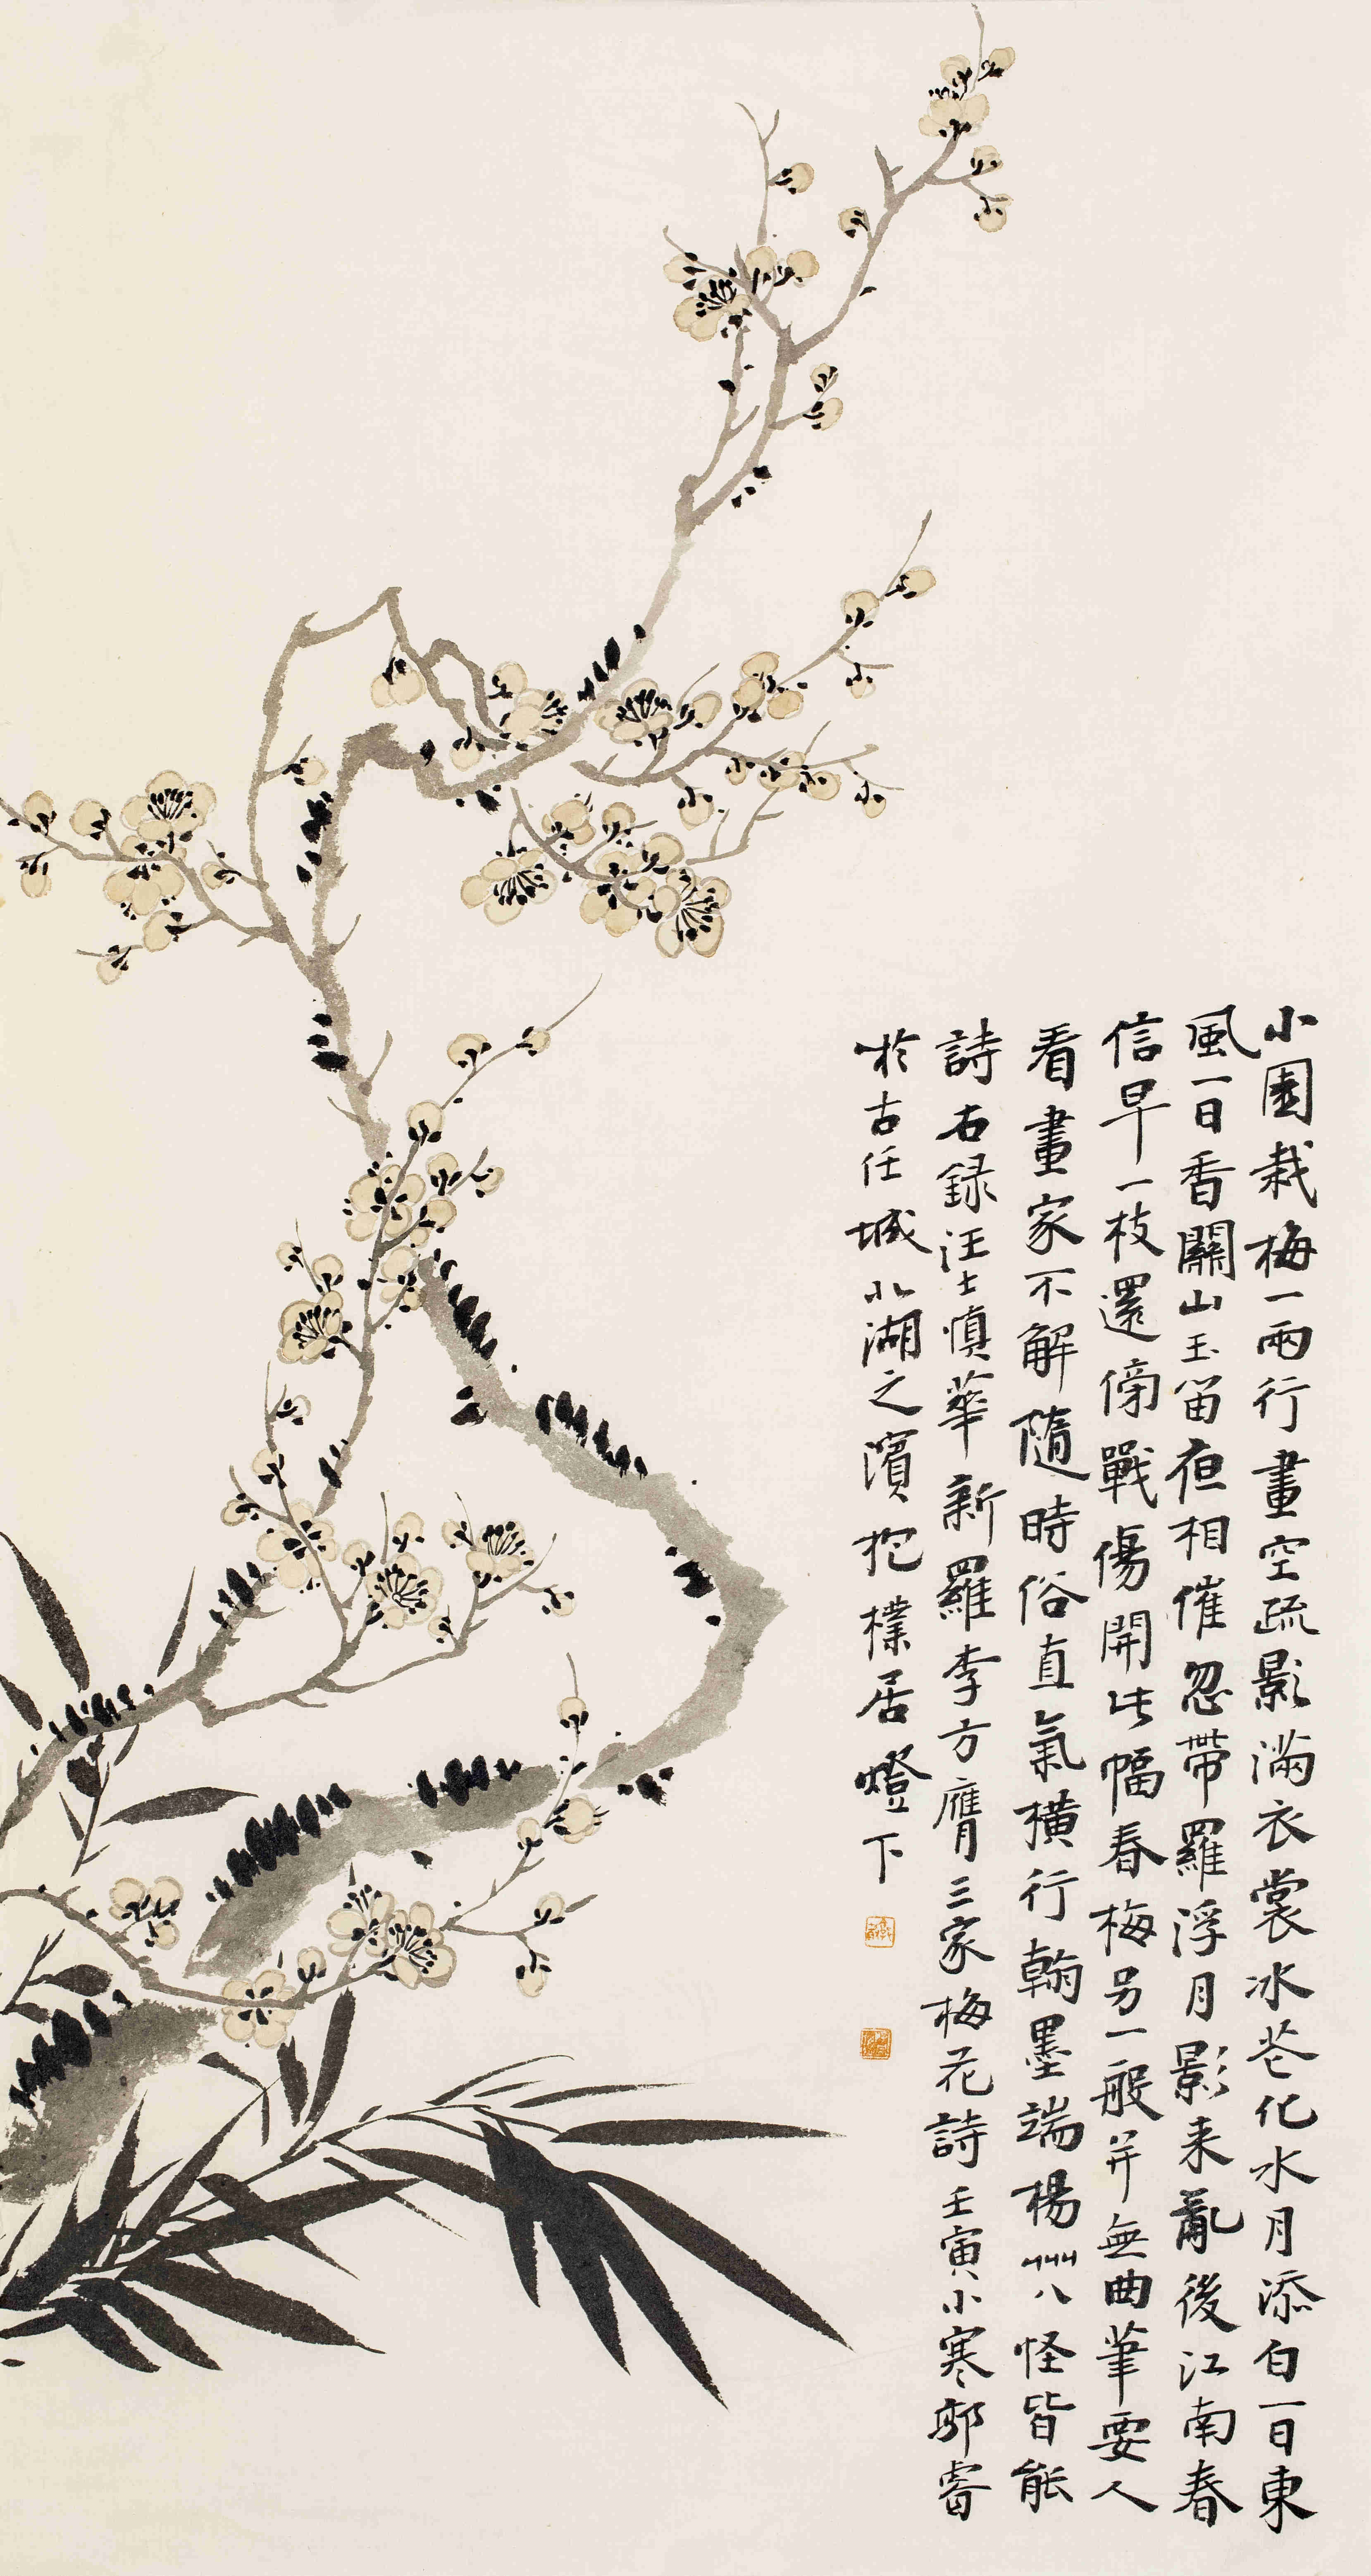 小園栽梅一兩行畫空疏影滿衣裳冰花化水月添白一日東
風一日香關山玉笛夜相催忽帶羅浮月影来亂後江南春
信早一枝還傍戰傷開此幅春梅另一般并無曲筆要人
看畫家不解隨時俗直氣橫行翰墨端楊州八怪皆能
詩右録汪士慎華新羅李方膺三家梅花詩壬寅小寒郭睿
於古任城小湖之濱抱樸居燈下